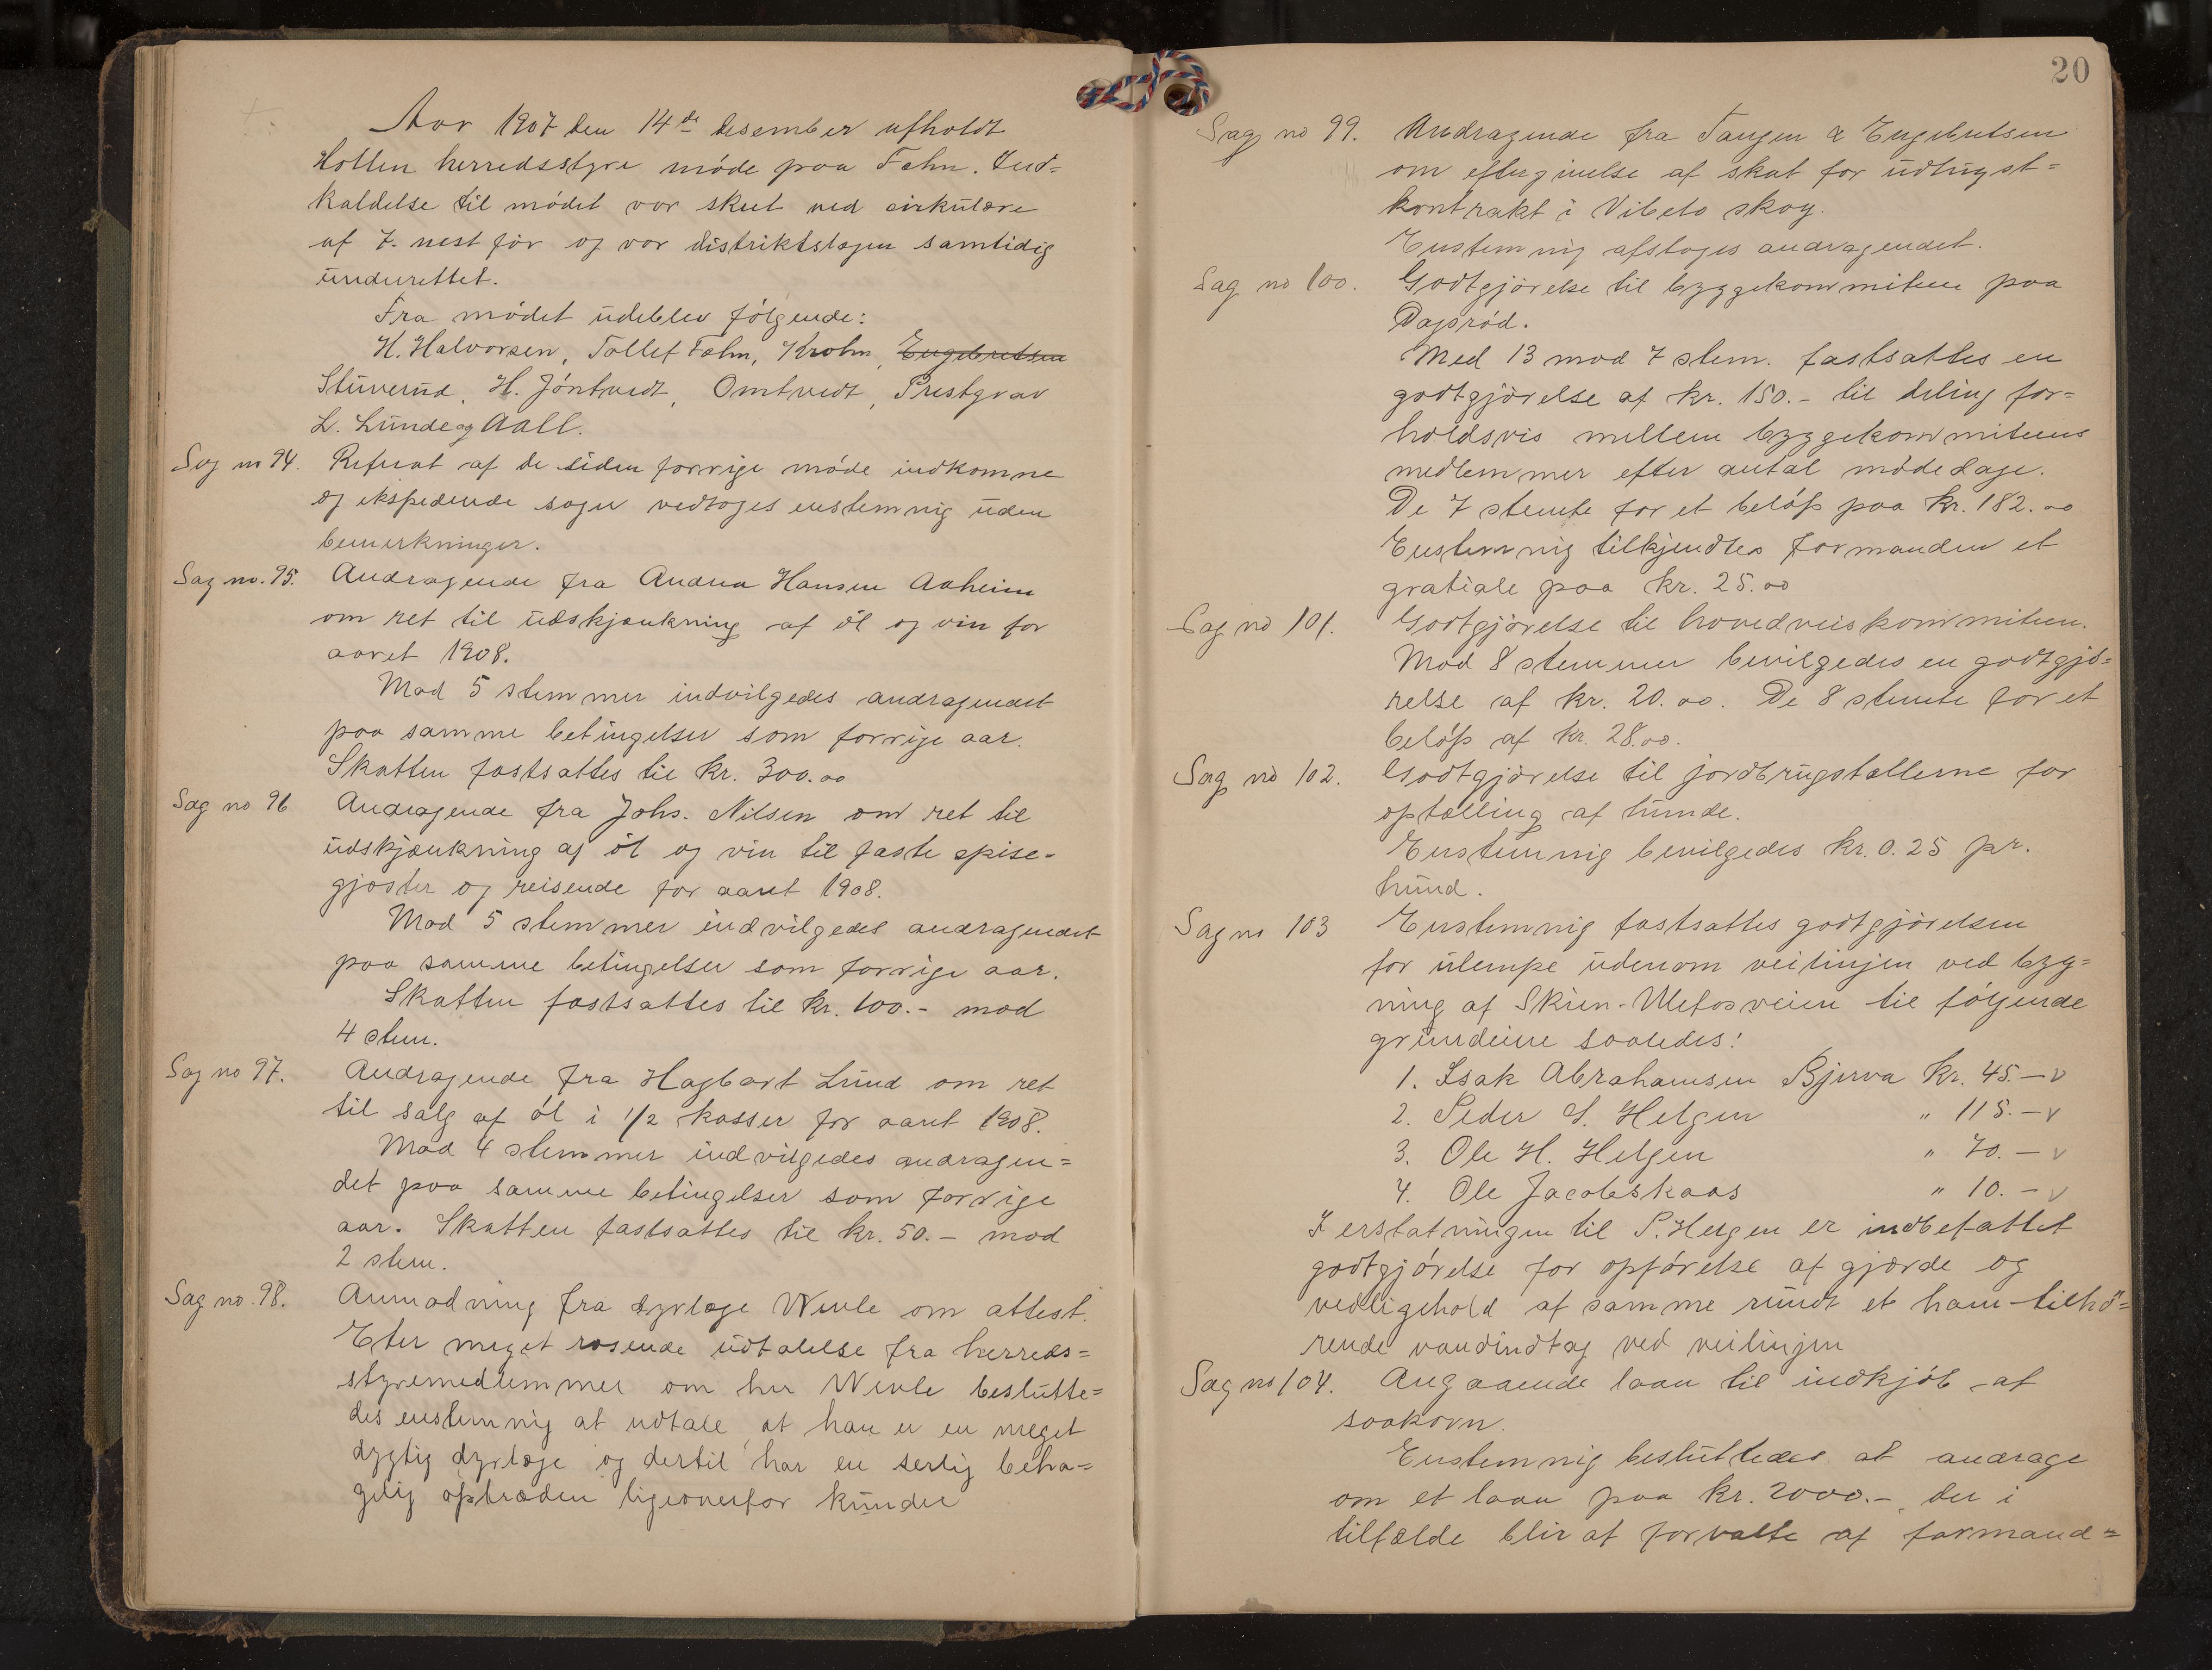 Aar 1907 den 14de desember afholdt
Hollen herredsstyre møde paa Fehn. Ind=
kaldelse til mødet var skeet ved cirkulære
af 7. nest før og var distriktslægen samtidig
underrettet.
Fra mødet udeblev følgende:
H. Halvorsen, Tollef Fehn, Krohn, Engebretsen
Stuverud, H. Jøntvedt, Omtvedt, Prestgrav
L. Lunde og Aall.
Sag no 94. Referat af de siden forrige møde indkomne
og ekspederede sager vedtoges enstemmig uden
bemerkninger.
Sag no. 95. Andragende fra Andrea Hansen Aaheim
om ret til udskjænkning af øl og vin for
aaret 1908.
Mod 5 stemmer indvilgedes andragendet
paa samme betingelser som forrige aar.
Skatten fastsattes til kr. 300.00
Sag no 96 Andragende fra Johs. Nilsen om ret til
udskjænkning af øl og vin til faste spise-
gjæster og reisende for aaret 1908.
Mod 5 stemmer indvilgedes andragendet
paa samme betingelser som forrige aar.
Skatten fastsattes til kr. 100.- mod
4 stem.
Sag no 97. Andragende fra Hagbart Lund om ret
til salg af øl i 1/2 kasser for aaret 1908.
Mod 4 stemmer indvilgedes andragen=
det paa samme betingelser som forrige
aar. Skatten fastsattes til kr. 50.- mod
2 stem.
Sag no. 98. Anmodning fra dyrlæge Werle om attest.
Efter meget rosende udtalelse fra herreds=
styremedlemmer om hr Werle beslutte=
des enstemmig at udtale at han er en meget
dygtig dyrlæge og dertil har en serlig beha=
gelig optræden ligeoverfor kunder
20
Sag no 99. Andragende fra Tangen & Engebretsen
om eftergivelse af skat for udtugst=
kontrakt i Vibeto skog.
Enstemmig afsloges andragendet.
Sag no 100. Godtgjørelse til byggekommiteen paa
Dagsrød.
Med 13 mod 7 stem. fastsattes en
godtgjørelse af kr. 150.- til deling for=
holdsvis mellem byggekommiteens
medlemmer efter antal mødedage.
De 7 stemte for et beløp paa kr. 182.00
Enstemmig tilkjendtes formanden et
gratiale paa kr. 25.00
Sag no 101. Godtgjørelse til hovedveiskommiteen.
Mod 8 stemmer bevilgedes en godtgjø=
relse af kr. 20.00. De 8 stemte for et
beløp af kr. 28.00.
Sag no 102. Godtgjørelse til jordbrugstællerne for
optælling af hunde.
Enstemmig bevilgedes kr. 0.25 pr.
hund.
Sag no 103 Enstemmig fastsattes godtgjørelsen
for ulempe udenom veilinjen ved byg=
ning af Skien-Ulefosveien til følgende
grundeiere saaledes:
1. Isak Abrahamsen Bjerva kr. 45.— v
2. Peder S. Helgen " 115.— v
3. Ole H. Helgen " 70.— v
4. Ole Jacobskaas " 10.— v
I erstatningen til P. Helgen er indbefattet
godtgjørelse for opførelse af gjærde og
vedligehold af samme rundt et ham tilhø=
rende vandindtag ved veilinjen
Sag no 104. Angaaende laan til indkjøb af
saakorn.
Enstemmig besluttedes at andrage
om et laan paa kr. 2000.-, der i
tilfælde blir at forvalte af formand=